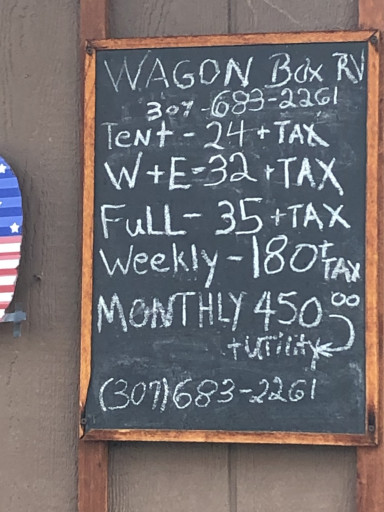 WAGON Box RV
307-683-2261
TENT - 24 + TAX
W+E=32 +TAX
FULL- 35 +TAX
Weekly - 180 + TAX
MONTHLY 450 00
+ Utility
(307) 683-2261